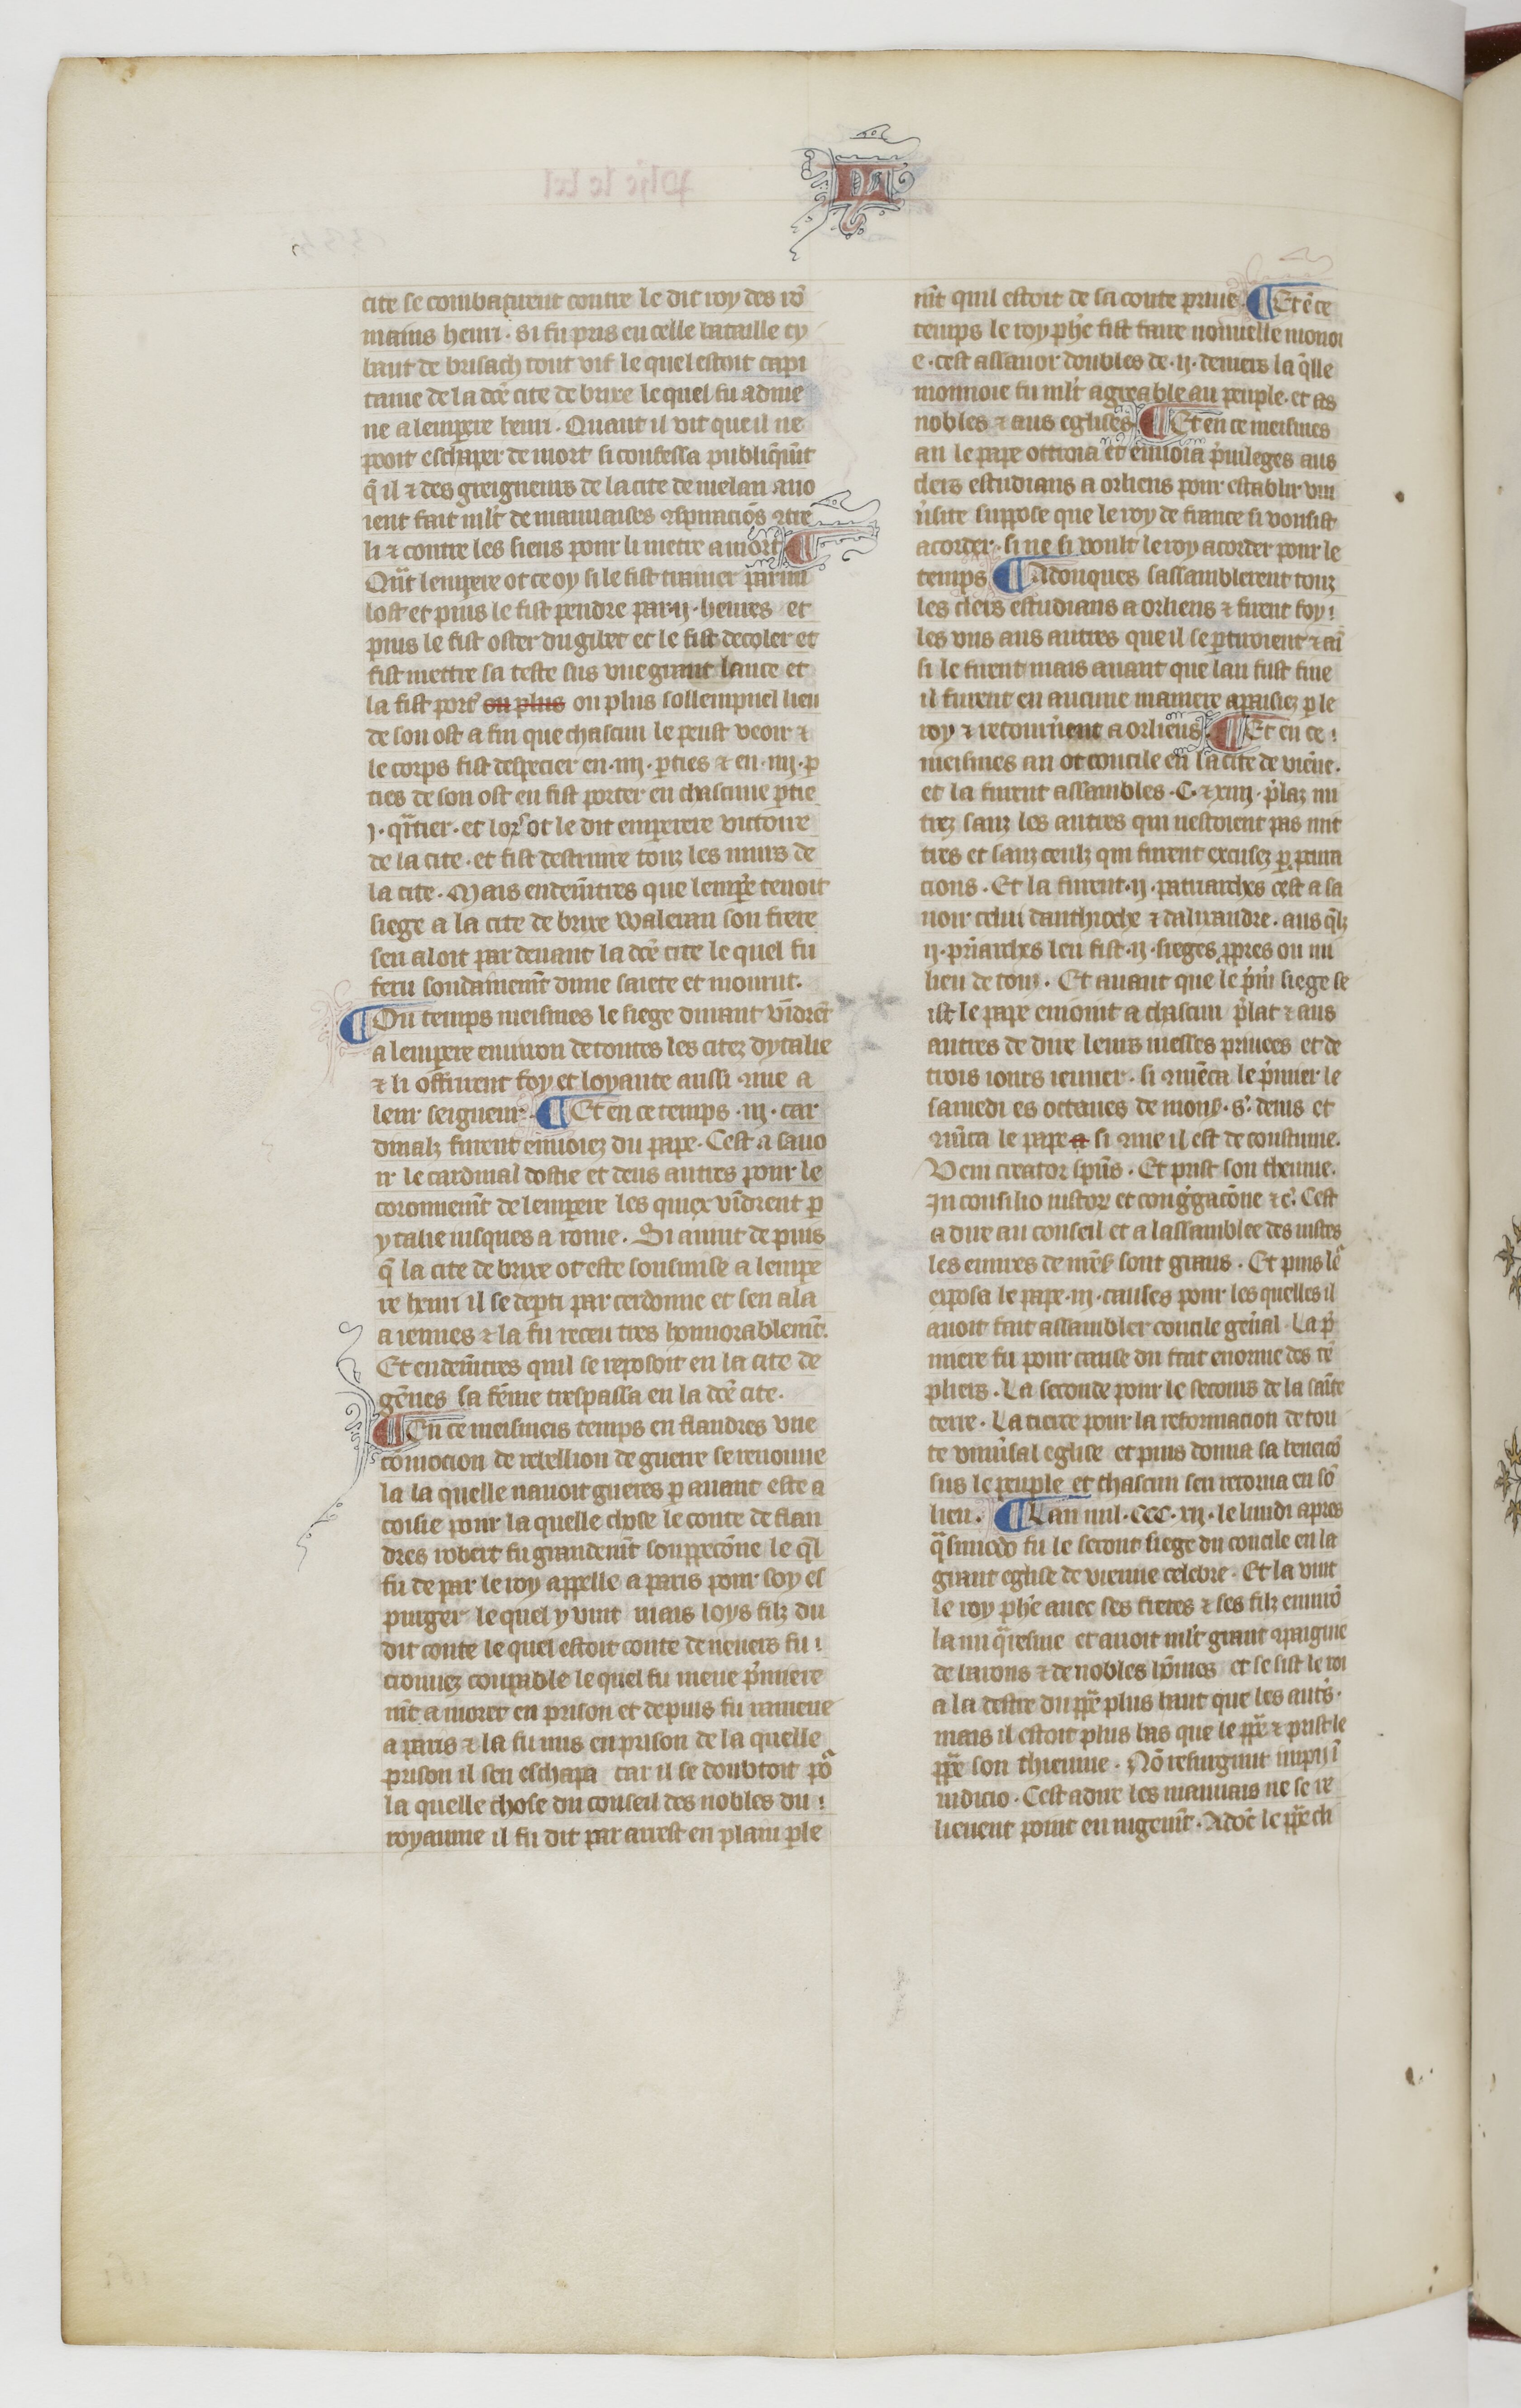 cite se combatirent contre le dit roy des rō
mains henri . Si fu pris en celle bataille ty
baut de brisach tout vif le quel estoit capi
taine de la dc̄e cite de brixe le quel fu adme
ne a lempere henri . Quant il vit que il ne
pooit eschaper de mort si confessa publiq̄mēt
q̄ il & des greigneurs de la cite de melan auo
ient fait ml̄t de mauuaises ꝯspiracions ꝯtre
li & contre les siens pour li metre a mort ¶
Qn̄t lempere ot ce oy si le fist trainer parmi
lost et puis le fist pendre par .ij. heures et
puis le fist oster du gibet et le fist decoler et
fist mettre sa teste sus vne grant lance et
la fist port̾ ou plus ou plus sollempnel lieu
de son ost a fin que chascun le peust veoir &
le corps fist despecier en .iiij. ꝑties & en .iiij. ꝑ
ties de son ost en fist porter en chascune ꝑtie
j. qr̄tier . et lors ot le dit emperere victoire
de la cite . et fist destruire touz les murs de
la cite . Mais endem̄tres que lempe̾ tenoit
siege a la cite de brixe waleran son frere
sen aloit par deuant la dc̄e cite le quel fu
feru soudainem̄t dune saiete et mourut .
¶ Ou temps meismes le siege durant vīdrēt
a lempere enuiron de toutes les citez dytalie
& li offrirent foy et loyaute aussi ꝯme a
leur seigneur . ¶ Et en ce temps .iij. car
dinalz furent enuoiez du pape . Cest a sauo
ir le cardinal dostie et deus autres pour le
coronnem̄t de lempere les quiex vīdrent ꝑ
ytalie iusques a rome . Si auint de puis
q̄ la cite de brixe ot este sousmise a lempe
re henri il se deꝑti par cerdonne et sen ala
a iennes & la fu receu tres honnorablemt̄.
Et endem̄tres quil se reposoit en la cite de
gēnes sa fēme trespassa en la dc̄e cite .
¶ En ce meismeis temps en flandres vne
comocion de rebellion de guerre se renouue
la la quelle nauoit gueres ꝑ auant este a
coisie pour la quelle chose le conte de flan
dres robert fu grandemt̄ souppecōne le ql̄
fu de par le roy appelle a paris pour soy es
purger le quel y vint mais loys filz du
dit conte le quel estoit conte de neuers fu
trouuez coupable le quel fu mene p̾miere
mt̄ a moret en prison et depuis fu ramene
a paris & la fu mis en prison de la quelle
prison il sen eschapa car il se doubtoit poᷣ
la quelle chose du conseil des nobles du
royaume il fu dit par arrest en plain ꝑle
mt̄ quil estoit de sa conte priue . ¶ Et ē ce
temps le roy ph̾e fist faire nouuelle monoi
e . cest assauoir doubles de .ij. deniers la q̄lle
monnoie fu ml̄t agreable au peuple . et as
nobles & aus eglises ¶ Et en ce meismes
an le pape ottroia et enuoia p̾uileges aus
clers estudians a orliens pour establir vni
u̾site suppose que le roy de france si vousist
acorder . si ne si voult le roy acorder pour le
temps ¶ Adonques sassamblerent touz
les clers estudians a orliens & firent foy
les vns aus autres que il se ꝑtiroient & aī
si le firent mais auant que lan fust fine
il furent en aucune maniere apaisiez ꝑ le
roy & retourn̾ent a orliens ¶ Et en ce
meismes an ot concile en la cite de viēne .
et la furent assambles .C. & xiiij. p̾laz mi
trez sanz les autres qui nestoient pas mit
tres et sanz ceulz qui furent excusez ꝑ ꝓcura
cions . Et la furent .ij. patriarches cest a sa
uoir celui danthioche & dalixandre . aus q̄lz
ij. pr̄iarches len fist .ij. sieges ꝓpres ou mi
lieu de touz . Et auant que le p̾mi̾ siege se
ist le pape enioint a chascun p̾lat & aus
autres de dire leurs messes priuees et de
trois iours ieuner . si ꝯmēca le p̾mier le
samedi es octaues de mons̾. s̾. denis et
ꝯmēca le pape a si ꝯme il est de coustume .
Veni creator spūs . Et prist son theume .
In consilio iustorꝝ et congg̾gacōne & c̾. Cest
a dire au conseil et a lassamblee des iustes
les euures de nr̄es̾ sont grans . Et puis le᷑
exposa le pape .iij. causes pour les quelles il
auoit fait assambler concile gen̾al . La p̾
miere fu pour cause du fait enorme des tē
pliers . La seconde pour le secours de la sāīte
terre . La tierce pour la reformacion de tou
te vniu̾sal eglise et puis donna sa beneicō
sus le peuple et chascun sen retorna en sō
lieu . ¶ Lan mil .CCC. xij. le lundi apres
q̄simodo fu le secont siege du concile en la
grant eglise de vienne celebre . Et la vint
le roy ph̾e auec ses freres & ses filz enuirō
la mi q̄resme et auoit ml̄t grant ꝯpaignie
de barons & de nobles hōmes et se sist le roi
a la destre du pp̄e plus haut que les aut̾s .
mais il estoit plus bas que le pp̄e & prist le
pp̄e son thieume . Nō resurgunt impij ī
iudicio . Cest a dire les mauuais ne se re
lieuent point en iugemt̄ . Adōc le pp̄e cli